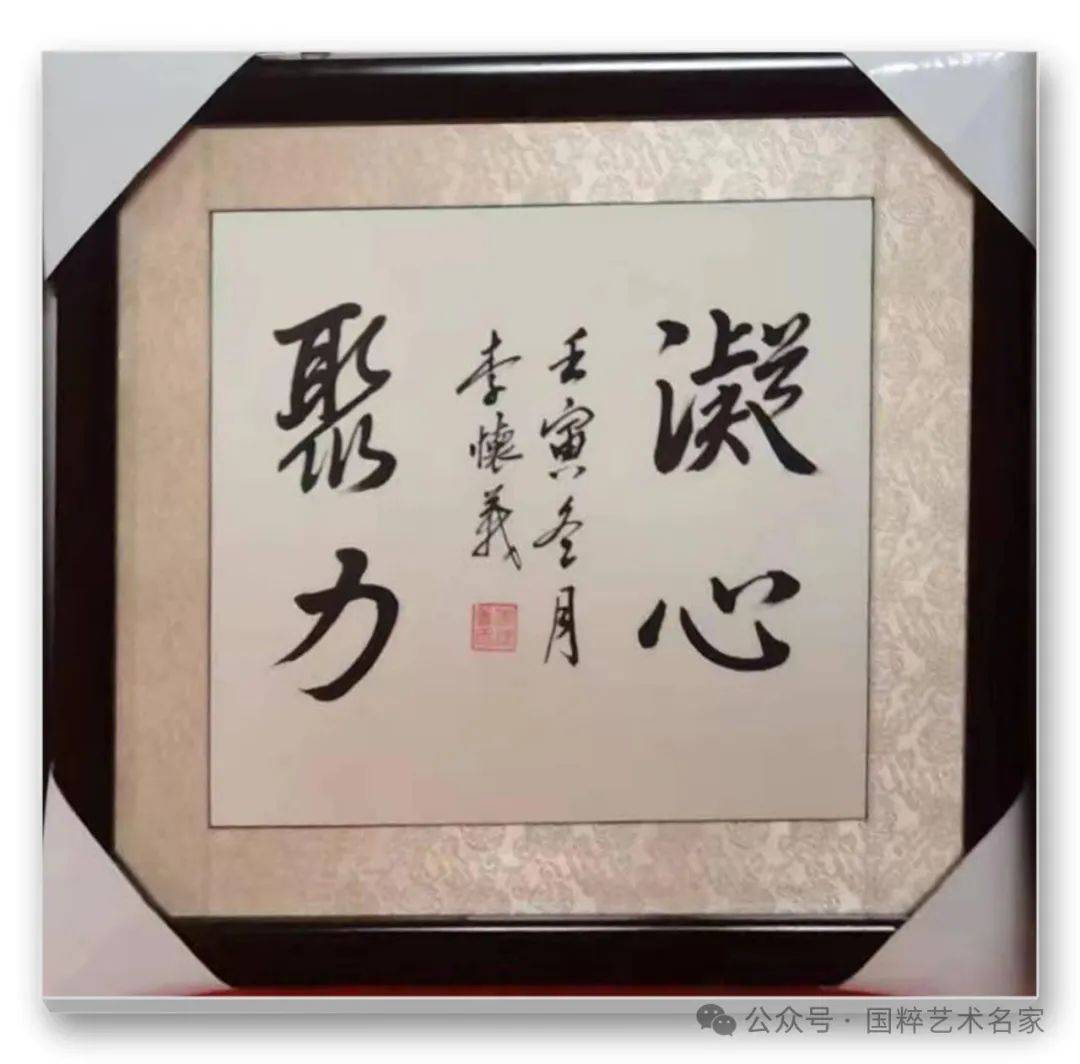 凝心
壬寅冬月
李懷義
聚力
公众号 · 国粹艺术名家